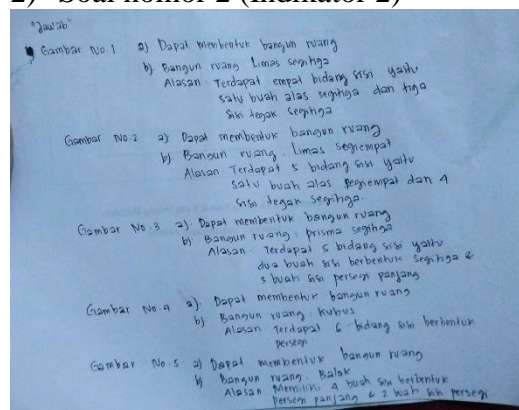 2) Soal nomor 2 (Indikator 2)
"Jawab"
Gambar No. 1 a) Dapat membentuk bangun ruang
b) Bangun ruang Limas segitiga
Alasan : Terdapat empat bidang sisi yaitu
satu buah alas segitiga dan tiga
sisi tegak segitiga.
Gambar No. 2 a) Dapat membentuk bangun ruang
b) Bangun ruang. Limas segiempat
Alasan Terdapat 5 bidang sisi yaitu
satu buah alas segiempat dan 4
sisi tegak segitiga.
Gambar No. 3 a). Dapat membentuk bangun ruang
b) Bangun ruang : prisma segitiga
Alasan : Terdapat 5 bidang sisi yaitu
dua buah sisi berbentuk segitiga &
3 buah sisi persegi panjang
Gambar No. 4 a). Dapat membentuk bangun ruang
b) Bangun ruang : Kubus
Alasan : Terdapat 6 bidang sisi berbentuk
persegi
Gambar No. 5 a) Dapat membentuk bangun ruang
b) Bangun ruang. Balok
Alasan Memiliki 4 buah sisi berbentuk
persegi panjang & 2 buah sisi persegi